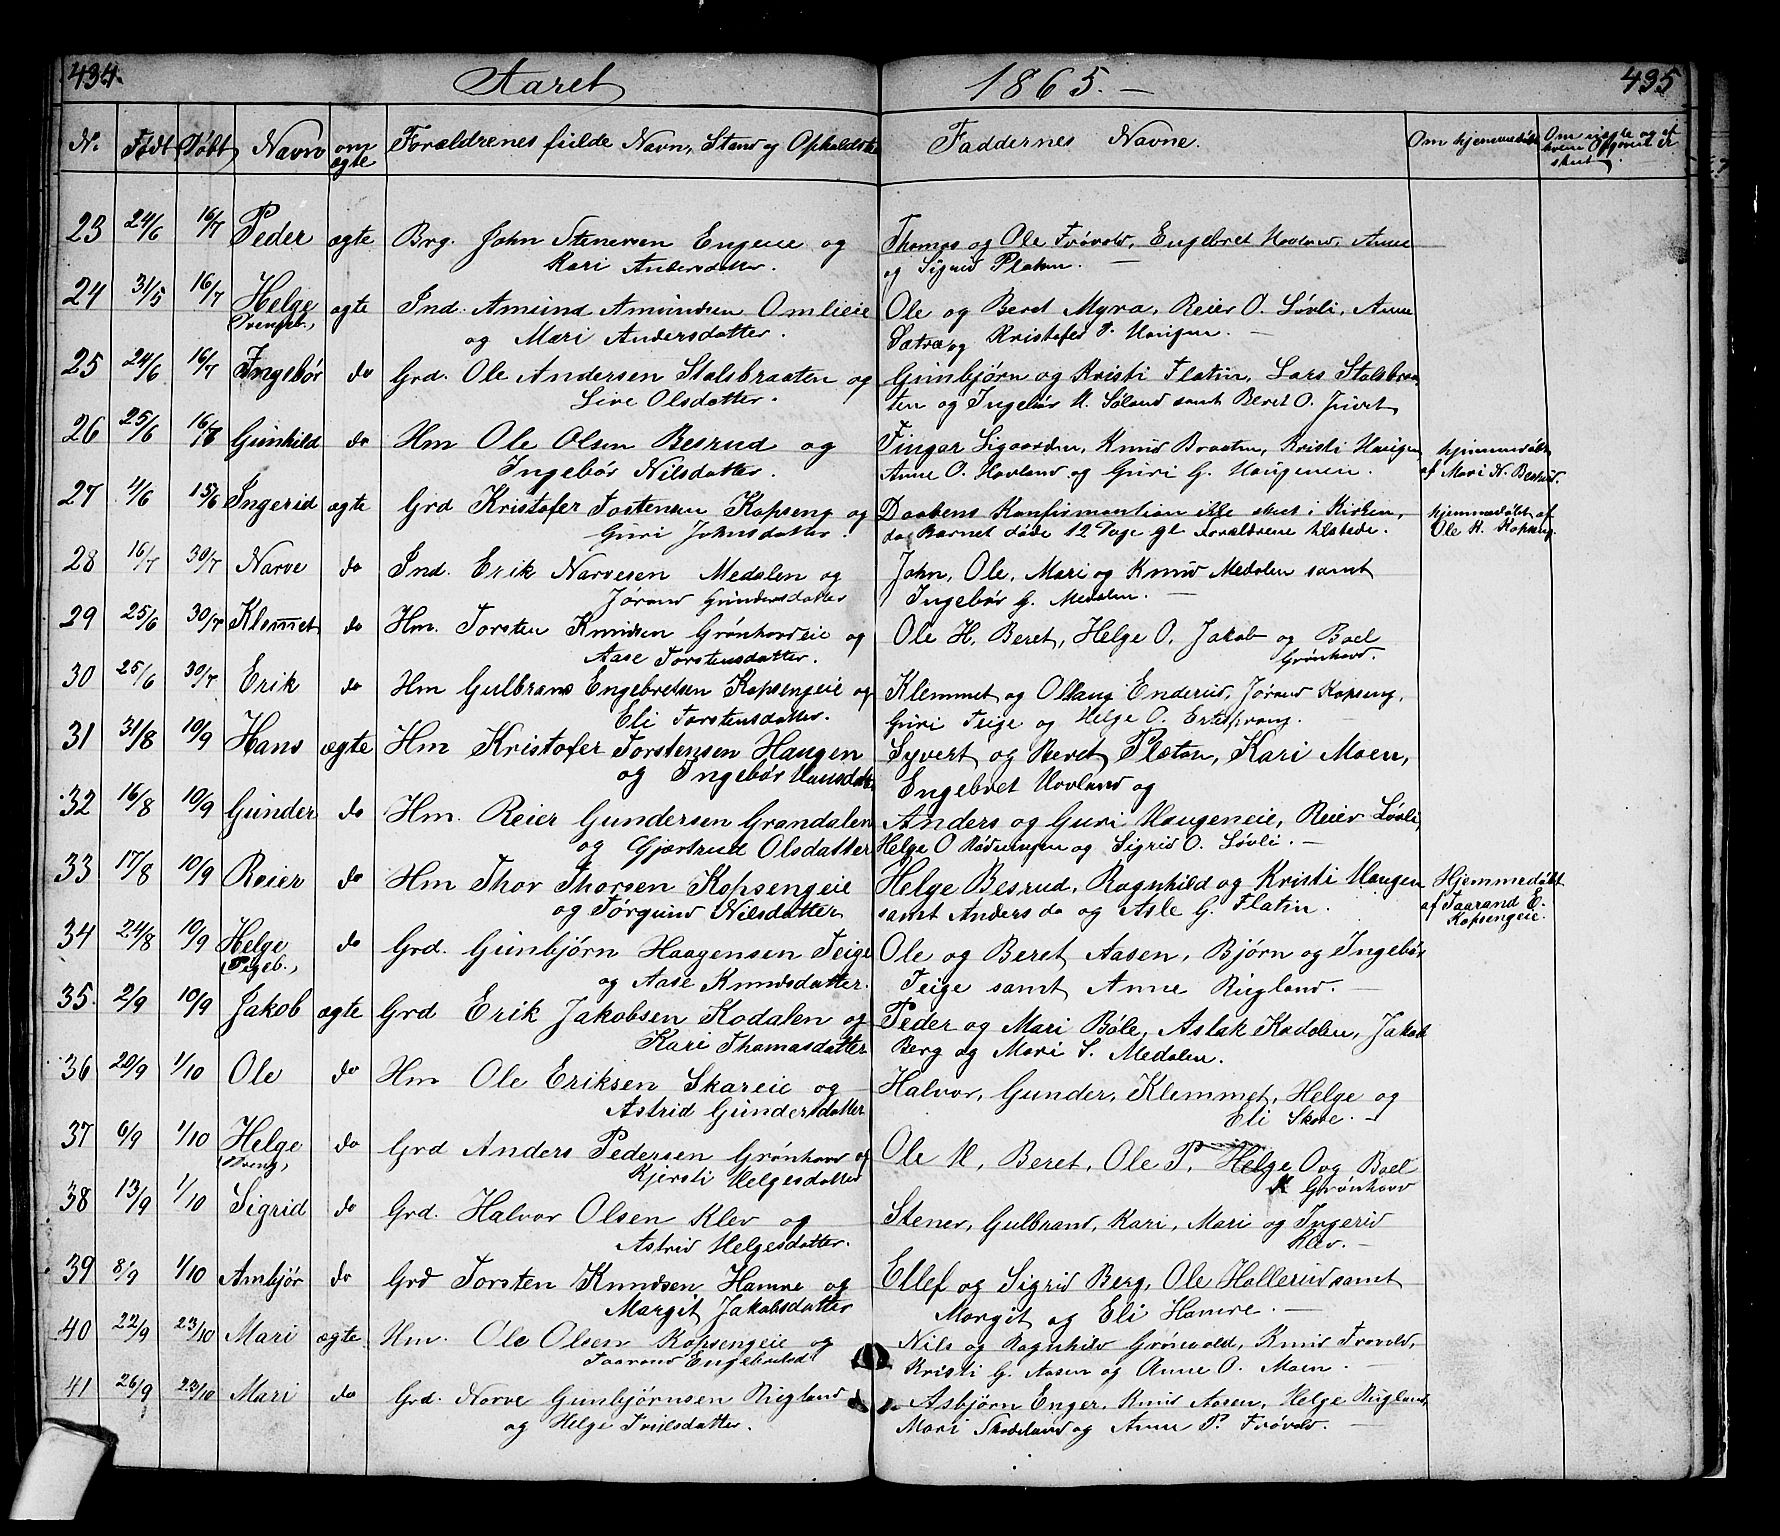 434. Aaret 1865. — 435
N. Født Døbt Navn om ægte Forældrenes fulde Navn, Stand og Opholdsted Faddernes Navne. Om hjemmedøbt Om uægte og af hvem Opgivet er skeet
23 24/6 16/7 Peder ægte Brg. John Stenersen Engene og Thomas og Ole Frövold, Engebret Hovland, Anne
Kari Andersdatter. og Sigrid Platen. —
24 31/5 16/7 Helge ægte Ind. Amund Amundsen Omlieie Ole og Beret Myra, Reier O. Lövli, Anne
Drengeb., og Mari Andersdatter. Sætra og Kristofer P. Haugen. —
25 24/6 16/7 Ingebör do Grd. Ole Andersen Stalsbraaten og Gunbjörn og Kristi Flatin, Lars Stalsbraa
Live Olsdatter. ten og Ingebör H. Söland samt Beret O. Juvet
26 25/6 16/7 Gunhild do Hm Ole Olsen Besrud og Fingar Sigaarden, Knud Braaten, Kristi Haugen hjemmedöbt
Ingebör Nilsdatter. Anne O. Hovland og Guri G. Haugenen. af Mari N. Besrud.
27 1/6 15/6 Ingerid ægte Grd Kristofer Tostensen Kopseng og Daabens Konfirmantion ikke skeet i Kirken, hjemmedöbt af
Guri Johnsdatter. da Barnet döde 12 Dage gl. Forældrene tilstede. Ole K. Kopseng.
28 16/7 30/7 Narve do Ind. Erik Narvesen Medalen og John, Ole, Mari og Knud Medalen samt
Jörand Gundersdatter Ingebör G. Medalen. —
29 25/6 30/7 Klemmet do Hm. Torsten Knudsen Grönhovdeie og Ole H. Beret, Helge O. Jakob og Boel
Aase Torstensdatter. Grönhovd.
30 25/6 30/7 Erik do Hm Gulbrand Engebretsen Kopsengeie og Klemmet og Ollaug Enderud, Jörand Kopseng,
Eli Torstensdatter. Guri Teige og Helge O. Ertesprang.
31 31/8 10/9 Hans ægte Hm Kristofer Torstensen Haugen Syvert og Beret Platen, Kari Moen,
og Ingebör Hansdatter Engebret Hovland og
32 16/8 10/9 Gunder do Hm. Reier Gundersen Grandalen Anders og Guri Haugeneie, Reier Lövli,
og Gjertrud Olsdatter Helge O Rödningen og Sigrid O. Lövli. —
33 17/8 10/9 Reier do Hm Thor Thorsen Kopsengeie Helge Besrud, Ragnhild og Kristi Haugen Hjemmedöbt
og Törgund Nilsdatter samt Anders do og Asle G. Flatin. af Taarand E. Kopsengeie.
34 24/8 10/9 Helge do Grd. Gunbjörn Haagensen Teige Ole og Beret Aasen, Björn og Ingebör
Pigeb., og Aase Knudsdatter. Teige samt Anne Rugland. —
35. 2/9 10/9 Jakob ægte Grd Erik Jakobsen Kodalen og Peder og Mari Böle, Aslak Kodalen, Jakob
Kari Thomasdatter Berg og Mari S. Medalen.
36 20/9 1/10 Ole do Hm Ole Eriksen Skareie og Halvor, Gunder, Klemmet, Helge og
Astrid Gundersdatter Eli Skare. —
37 6/9 1/10 Helge do Grd Anders Pedersen Grönhovd og Ole H, Beret, Ole P, Helge O og Boel
Dreng, Kjersti Helgesdatter Grönhovd
38 13/9 1/10 Sigrid do Grd. Halvor Olsen Klev og Stener, Gulbrand, Kari, Mari og Ingerid
Astrid Helgesdatter. Klev. —
39 8/9 1/10 Ambjör do Grd Torsten Knudsen Hamre og Ellef og Sigrid Berg, Ole Hallerud samt
Margit Jakobsdatter Margit og Eli Hamre. —
40 22/9 23/10 Mari ægte Hm. Ole Olsen Kopsengeie og Nils og Ragnhild Grönvold, Knud Frövold,
Taarand Engebretsd Kristi G. Aasen og Anne O. Moen.
41 26/9 23/10 Mari do Grd. Narve Gunbjörnsen Rugland Asbjörn Enger, Knud Aasen, Helge Rugland,
og Helge Truilsdatter. Mari Skodeland og Anne P. Frövold.